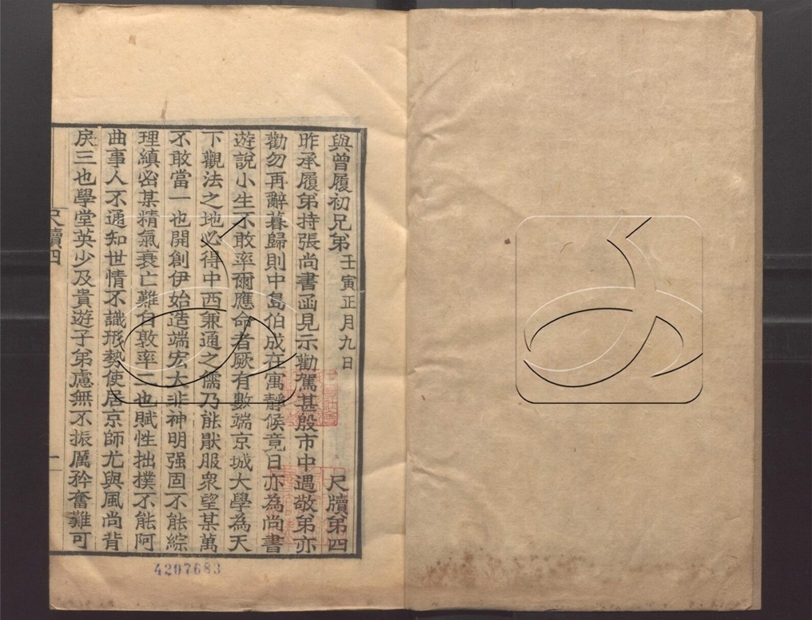 與曾履初兄弟 壬寅正月九日 尺牘弟四
昨承履弟持張尚書函見示勸駕甚殷市中遇敬弟亦
勸勿再辭暮歸則中島伯成在寓靜候竟日亦為尚書
遊說小生不敢率爾應命者厥有數端京城大學為天
下觀法之地必得中西兼通之儒乃能猒服衆望某萬
不敢當一也開創伊始造端宏大非神明强固不能綜
理縝密某精氣衰亡難自敦率二也賦性拙撲不能阿
曲事人不通知世情不識形勢使居京師尤與風尚背
戾三也學堂英少及貴遊子弟慮無不振厲矜奮難可
尺牘四
一
4207683